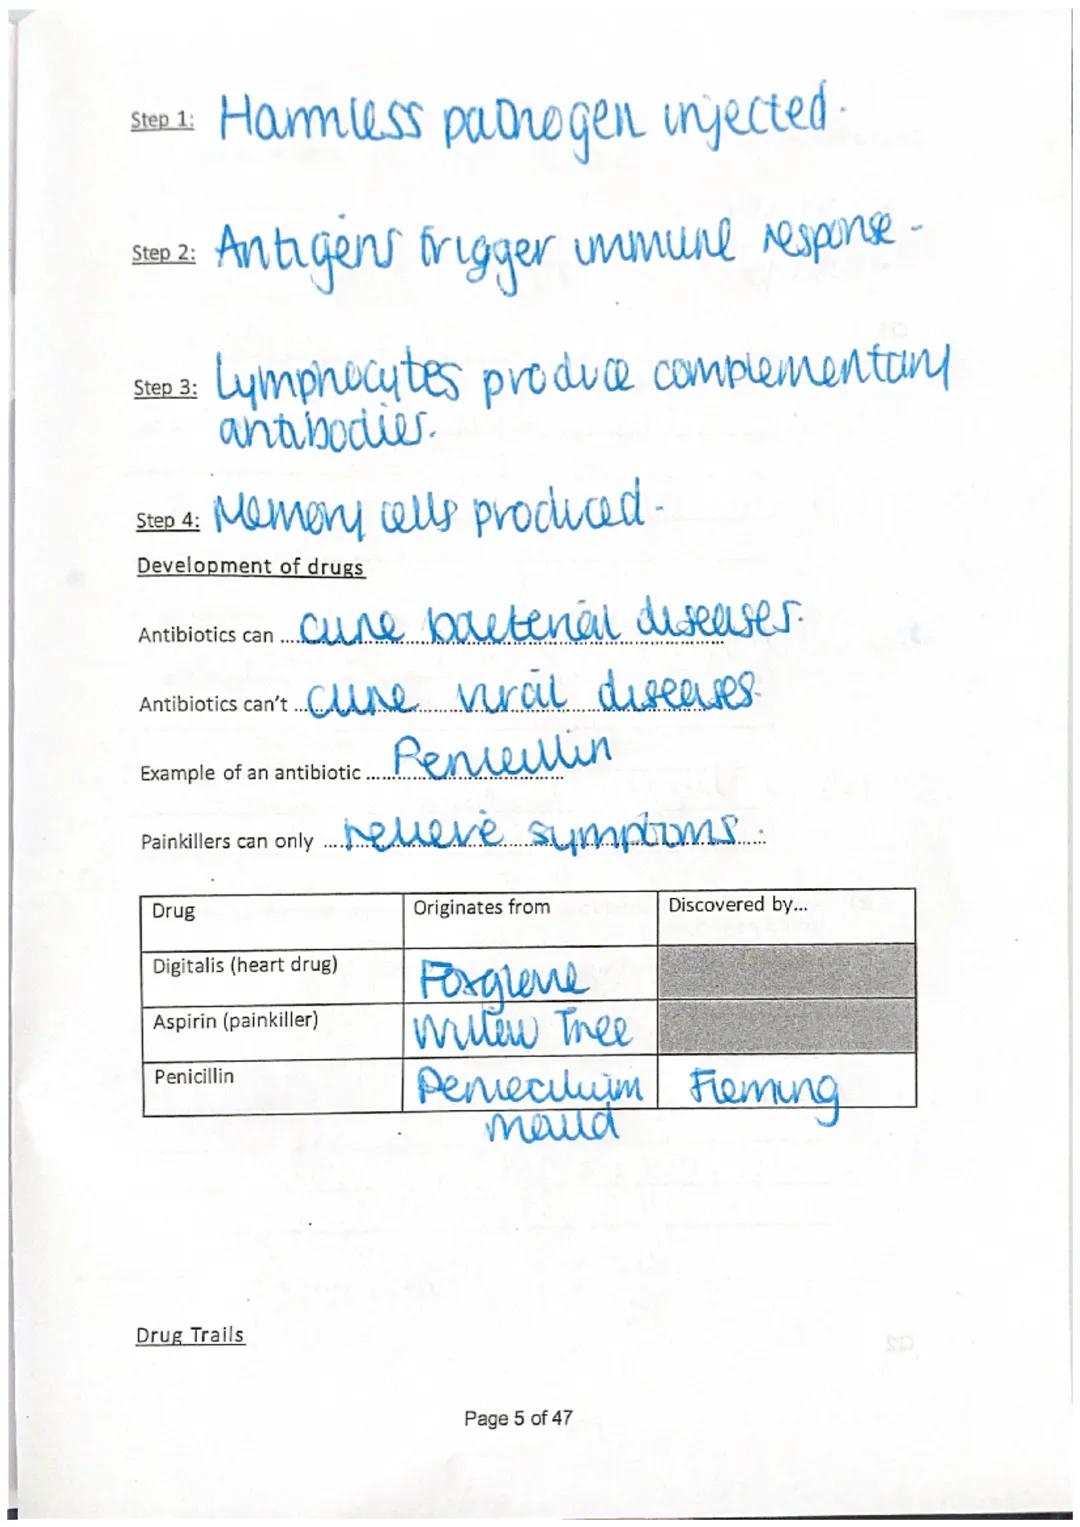 Step 1: Harmless pathogen injected.
Step 2: Antigens trigger immune response.
Step 3: Lymphocytes produce complementary
antibodies.
Step 4: Memory cells produced.
Development of drugs
Antibiotics can ... cure bacterial diseases.
Antibiotics can't ... cure viral diseases.
Example of an antibiotic ..... Penicillin
Painkillers can only ... relieve symptoms.
Drug Originates from Discovered by...
Digitalis (heart drug) Foxglove
Aspirin (painkiller) Willow Tree
Penicillin Penecilium Fleming
mould
Drug Trails
Page 5 of 47